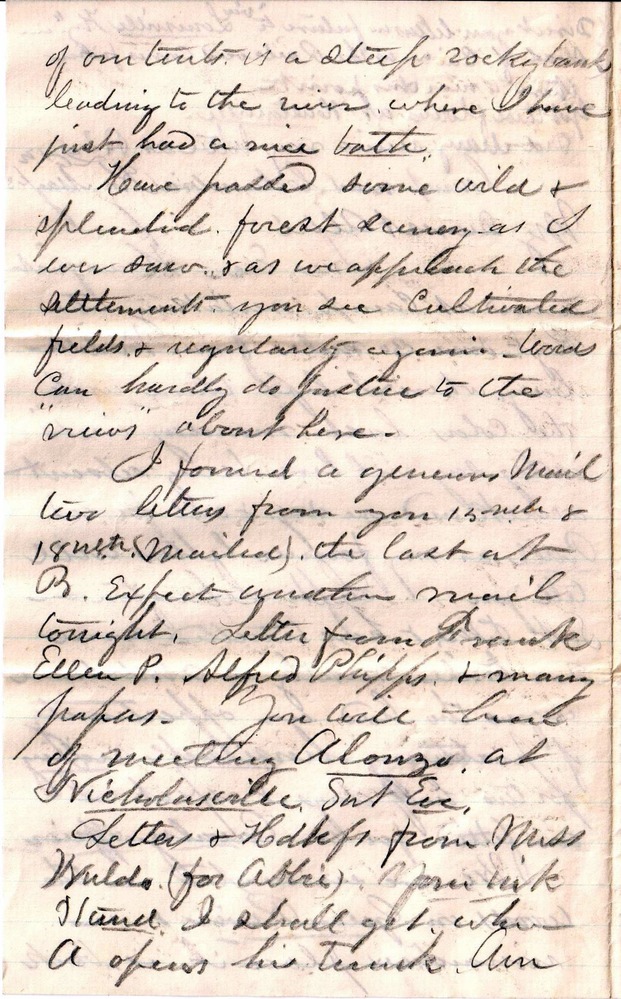 of our tents. is a steep rocky bank
leading to the river where I have
just had a nice bath.
Have passed some wild &
splendid forest scenery as I
ever saw. & as we approach the
settlements you see Cultivated
fields & regularity again. Words
Can hardly do justice to the
"views" about here.
I found a generous Mail
two letters from you 15 &
18 (Mailed). the last at
B. Expect another mail
tonight. Letter from Frank
Ellen P. Alfred Phipps. & many
papers. You will hear
of meeting Alonzo. at
Nicholasville.
Letters & Hdkfs from Miss
Waldo. (for Abbie). Your ink
Stand. I shall get. when
A opens his trunk. Am